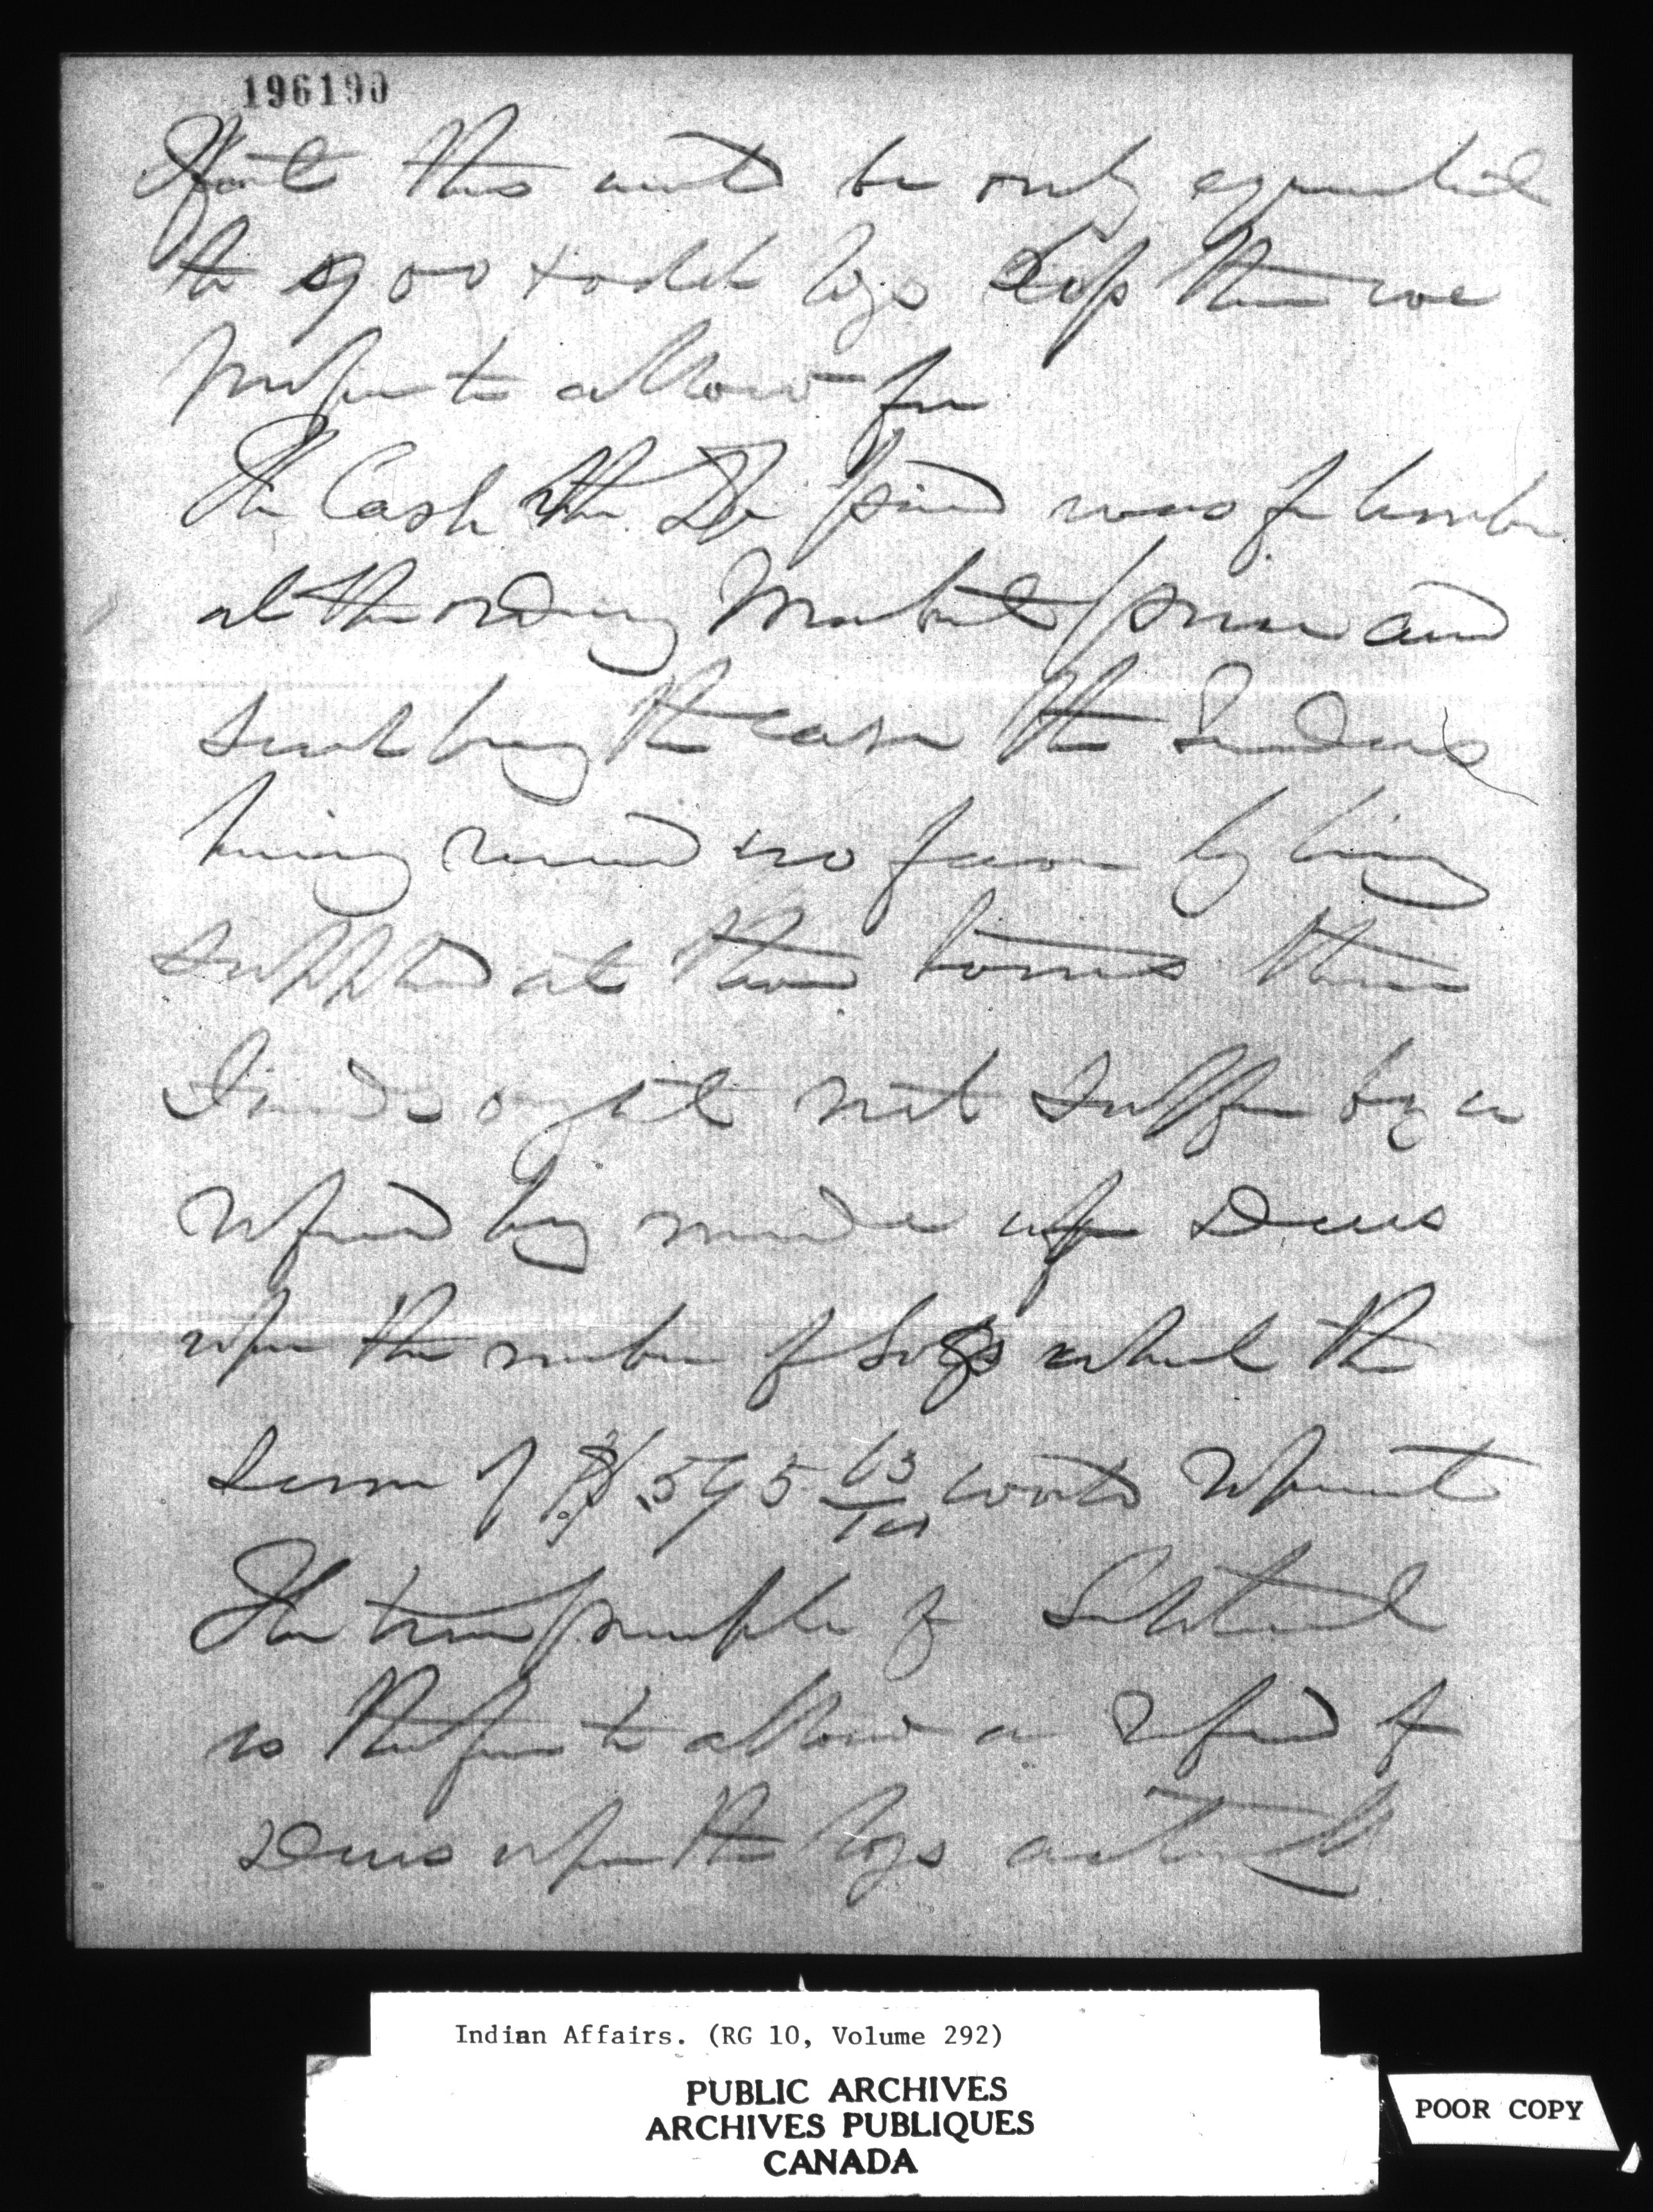 196190
that this would be only equivalent
to 900 logs less than we
propose to allow for
The Cash the Dr paid was for lumber
at the ordinary Market price and
such being the case the Indians
having received no favor by being
supplied at those times these
Funds ought not suffer by a
refund being made upon Dues
upon the number of Logs which the
sum of $595 63/100 would represent
The true principle of Settlement
is therefore to allow a refund of
Dues upon the logs actually
Indian Affairs. (RG 10, Volume 292)
PUBLIC ARCHIVES
ARCHIVES PUBLIQUES
CANADA
POOR COPY